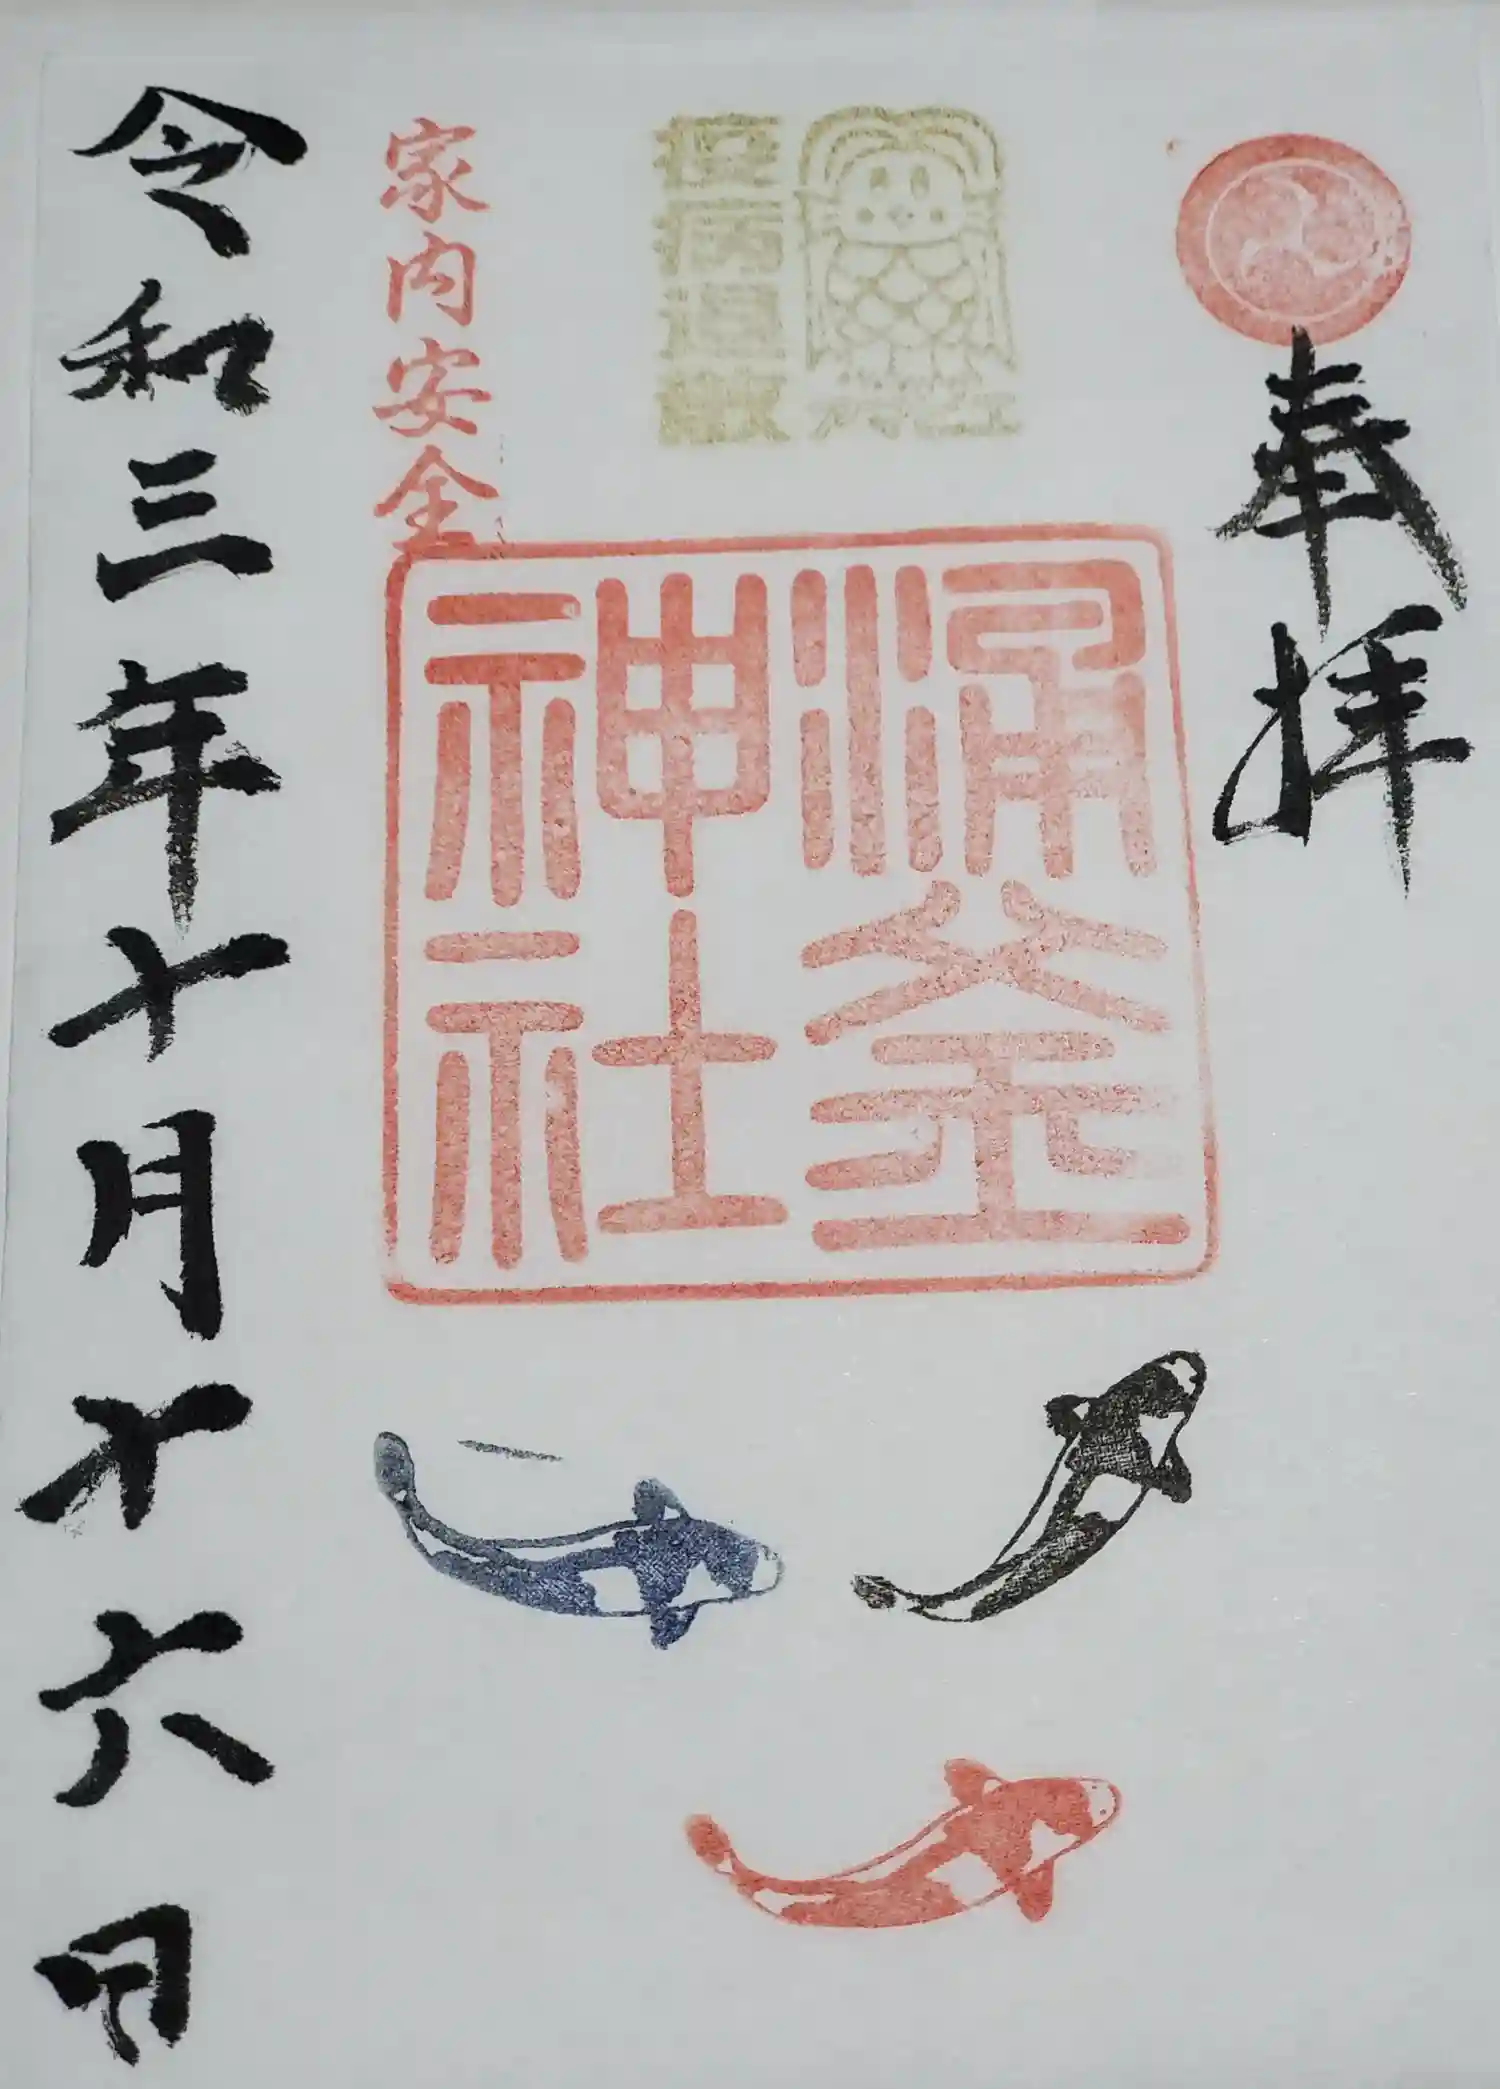 奉拝
疫病退散
涌釜
神社
家内安全
令和三年十月十六日